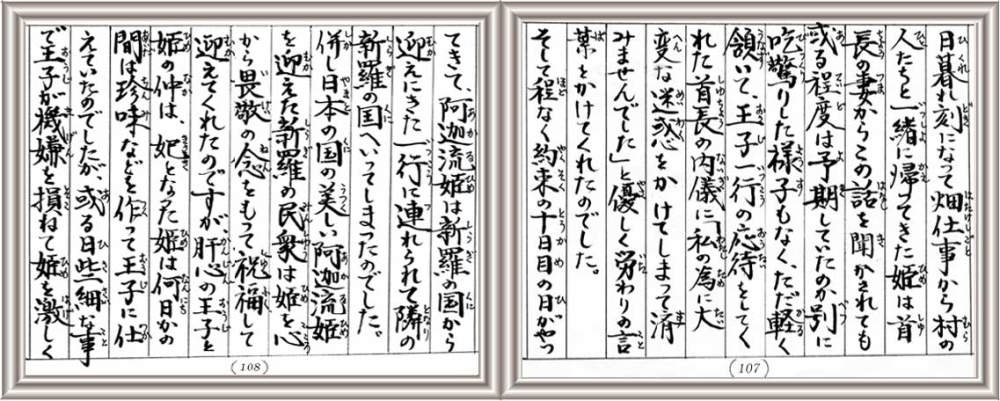 日暮れ刻になって畑仕事から村の
人たちと一緒に帰ってきた姫は首
長の妻からこの話を聞かされても
或る程度は予期していたのか別に
吃驚りした様子もなく、ただ軽く
頷いて、王子一行の応待をしてく
れた首長の内儀に「私の為に大
変な迷惑をかけてしまって済
みませんでした」と優しく労わりの言
葉をかけてくれたのでした。
そして程なく約束の十日目の日がやっ
(107)
てきて、阿迦流姫は新羅の国から
迎えにきた一行に連れられて隣の
新羅の国へいってしまったのでした。
併し日本の国の美しい阿迦流姫
を迎えた新羅の民衆は姫を心
から畏敬の念をもって祝福して
迎えてくれたのですが、肝心の王子と
姫の仲は、妃となった姫は何日かの
間は珍味などを作って王子に仕
えていたのでしたが、或る日些細な事
で王子が機嫌を損ねて姫を激しく
(108)